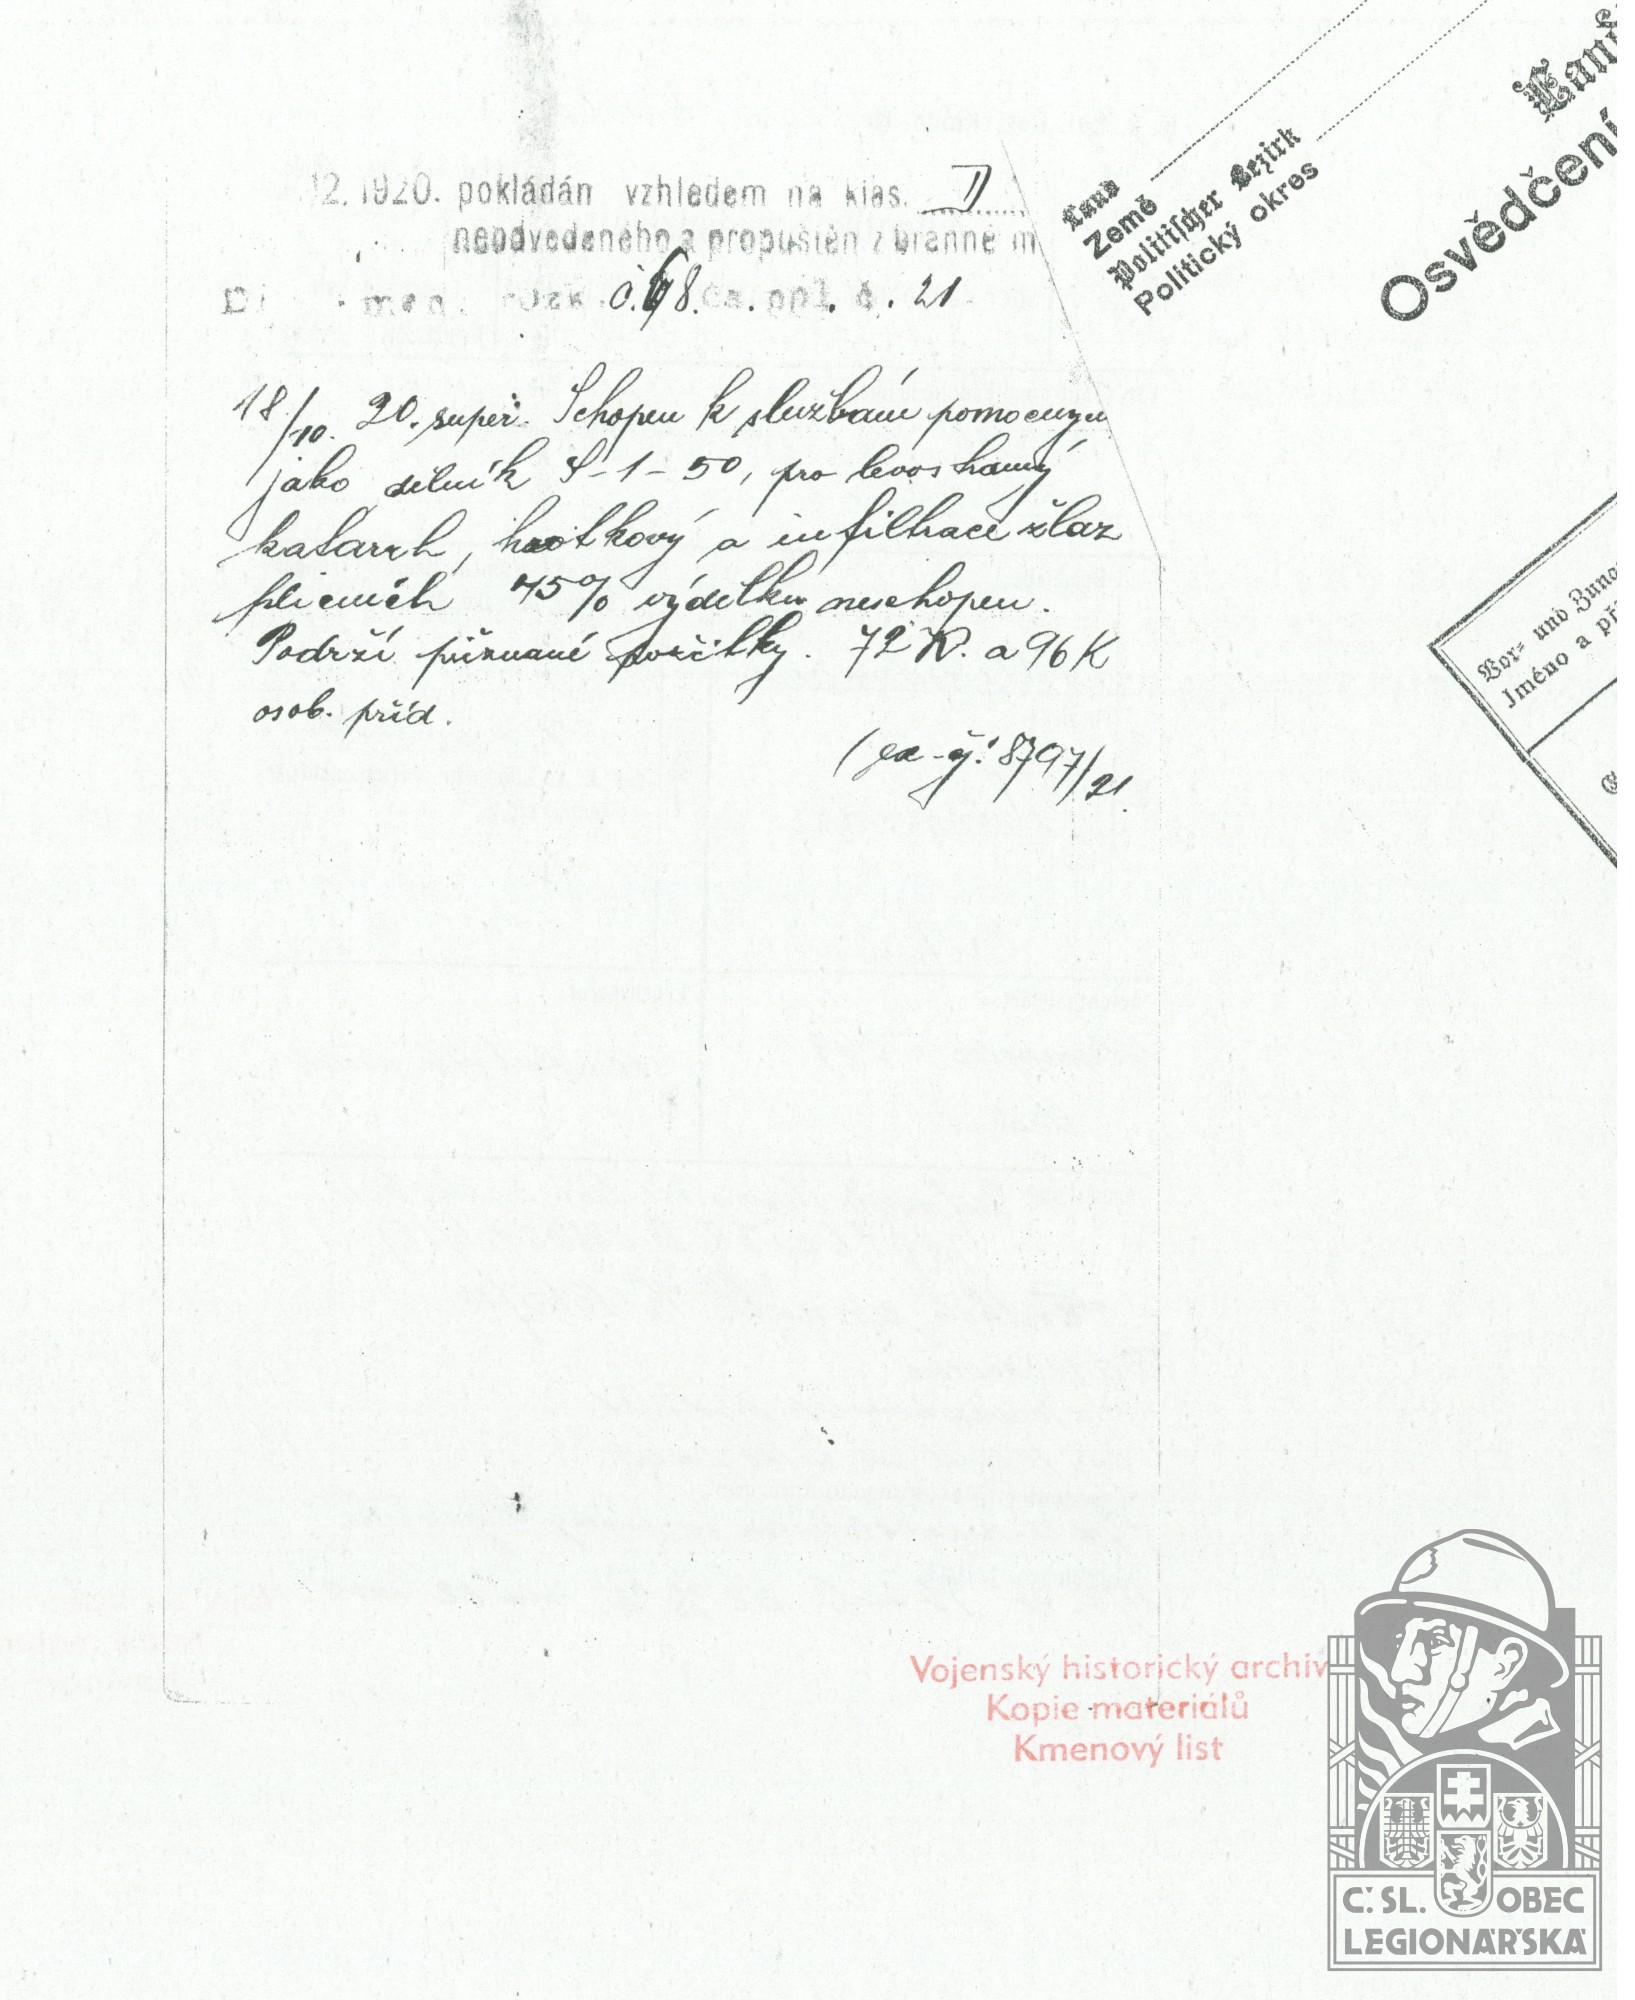 12.1920. pokládán vzhledem na klas. D
neodvedeného a propuštěn z branné m
č. 68. ppl. č. 21
18/10. 20. super. Schopen k službám pomocným
jako dělník S-1-50, pro levostranný
katarrh, hrotkový a infiltrace žlaz
plicních 75% výdělku neschopen.
Podrží přiznané požitky. 72 K. a 96 K
osob. příd.
8797/21
Land
Země
Politischer Bezirk
Politický okres
Osvědčení
Vor- und Zuna
Jméno a př
Vojenský historický archiv
Kopie materiálů
Kmenový list
Č. SL. OBEC
LEGIONÁŘSKÁ